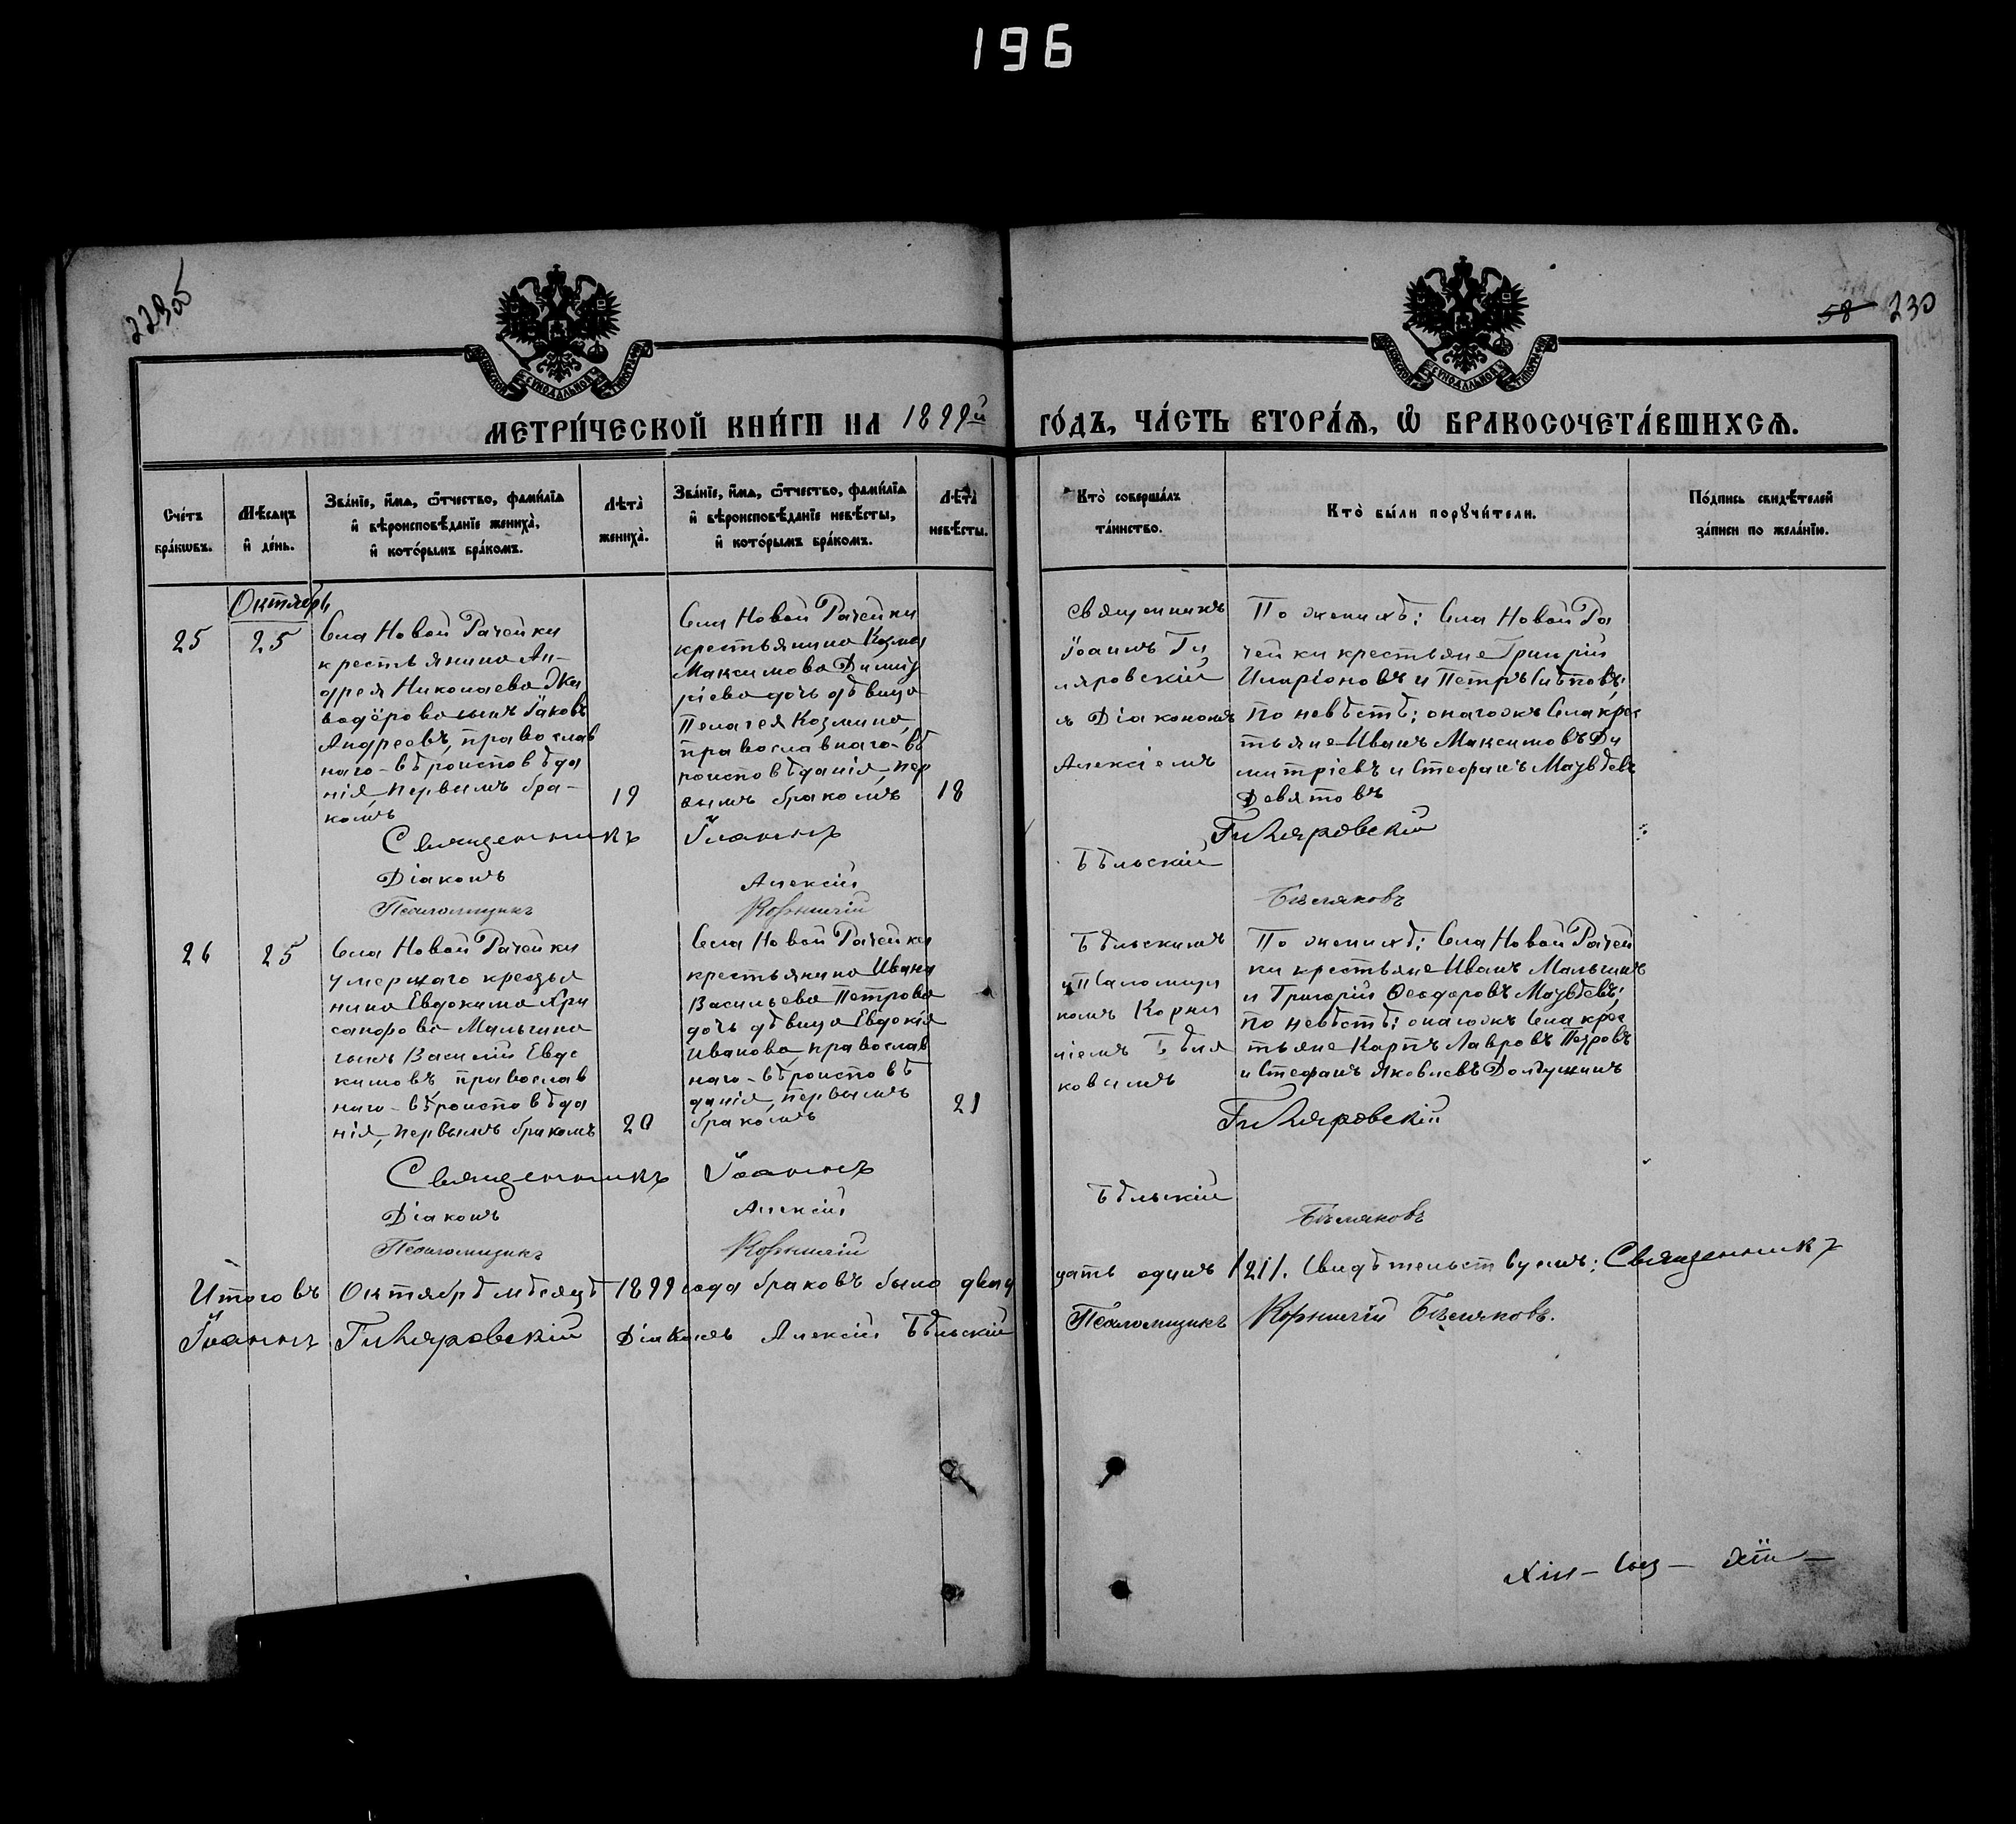 196
58 230
МЕТРИ́ЧЕСКОЙ КНИ́ГИ НА 1899й ГО́ДЪ, ЧА́СТЬ ВТОРА́Ѧ, Ѽ БРАКОСОЧЕТА́ВШИХСѦ.
Сче́тъ бра́кωвъ.
Мѣ́сѧцъ и҆ де́нь.
Зва́нїе, и҆́мѧ, ѻ҆́тчество, фами́лїѧ и҆ вѣроисповѣ́данїе жениха̀, и҆ кото́рымъ бра́комъ.
Лѣ́та̀ жениха̀.
Зва́нїе, и҆́мѧ, ѻ҆́тчество, фами́лїѧ и҆ вѣроисповѣ́данїе невѣ́сты, и҆ кото́рымъ бра́комъ.
Лѣ́та̀ невѣ́сты.
Кто̀ соверша́лъ та́инство.
Кто̀ бы́ли порꙋчи́тели.
По́дпись свидѣ́телей за́писи по жела́нїю.
Октябрь
25
25
Села Новой Рачейки
крестьянина Ан-
дрея Николаева
сынъ Іаковъ
Андреевъ, православ
наго-вѣроисповѣда
нія, первымъ бра-
комъ
19
Села Новой Рачейки
крестьянина Козмы
Максимова Димит
ріева дочь дѣвица
Пелагея Козмина,
православнаго-вѣ
роисповѣданія, пер
вымъ бракомъ
18
Священникъ
Іоаннъ Ги
ляровскій
и Діакономъ
Алексіемъ
По женихѣ: Села Новой Ра
чейки крестьяне Григорій
Иларіоновъ и Петръ
по невѣстѣ: онагожъ Села крес
тьяне Иванъ Максимовъ Ди
митріевъ и Стефанъ Матвѣевъ
Девятовъ
Священникъ Іоаннъ Гиляровскій
Діаконъ Алексій Бѣльскій
Псаломщикъ Корнилій Бѣляковъ
26
25
Села Новой Рачейки
умершаго крестья
нина Евдокима Хри
санфова Малыгина
сынъ Василій Евдо
кимовъ, православ
наго-вѣроисповѣда
нія, первымъ бракомъ
20
Села Новой Рачейки
крестьянина Ивана
Васильева Петрова
дочь дѣвица Евдокія
Иванова, православ
наго-вѣроисповѣ
данія, первымъ
бракомъ
21
Бѣльскимъ
и Псаломщи
комъ Корни
ліемъ Бѣля
ковымъ
По женихѣ: Села Новой Рачей
ки крестьяне Иванъ Малыгинъ
и Григорій Ѳеодоровъ Матвѣевъ;
по невѣстѣ: онагожъ Села крес
тьяне Карпъ Лавровъ Петровъ
и Стефанъ Яковлевъ
Священникъ Іоаннъ Гиляровскій
Діаконъ Алексій Бѣльскій
Псаломщикъ Корнилій Бѣляковъ
Итого въ Октябрѣ мѣсяцѣ 1899 года браковъ было двад цать одинъ /21/. Свидѣтельствуемъ: Священникъ
Іоаннъ Гиляровскій Діаконъ Алексій Бѣльскій Псаломщикъ Корнилій Бѣляковъ.